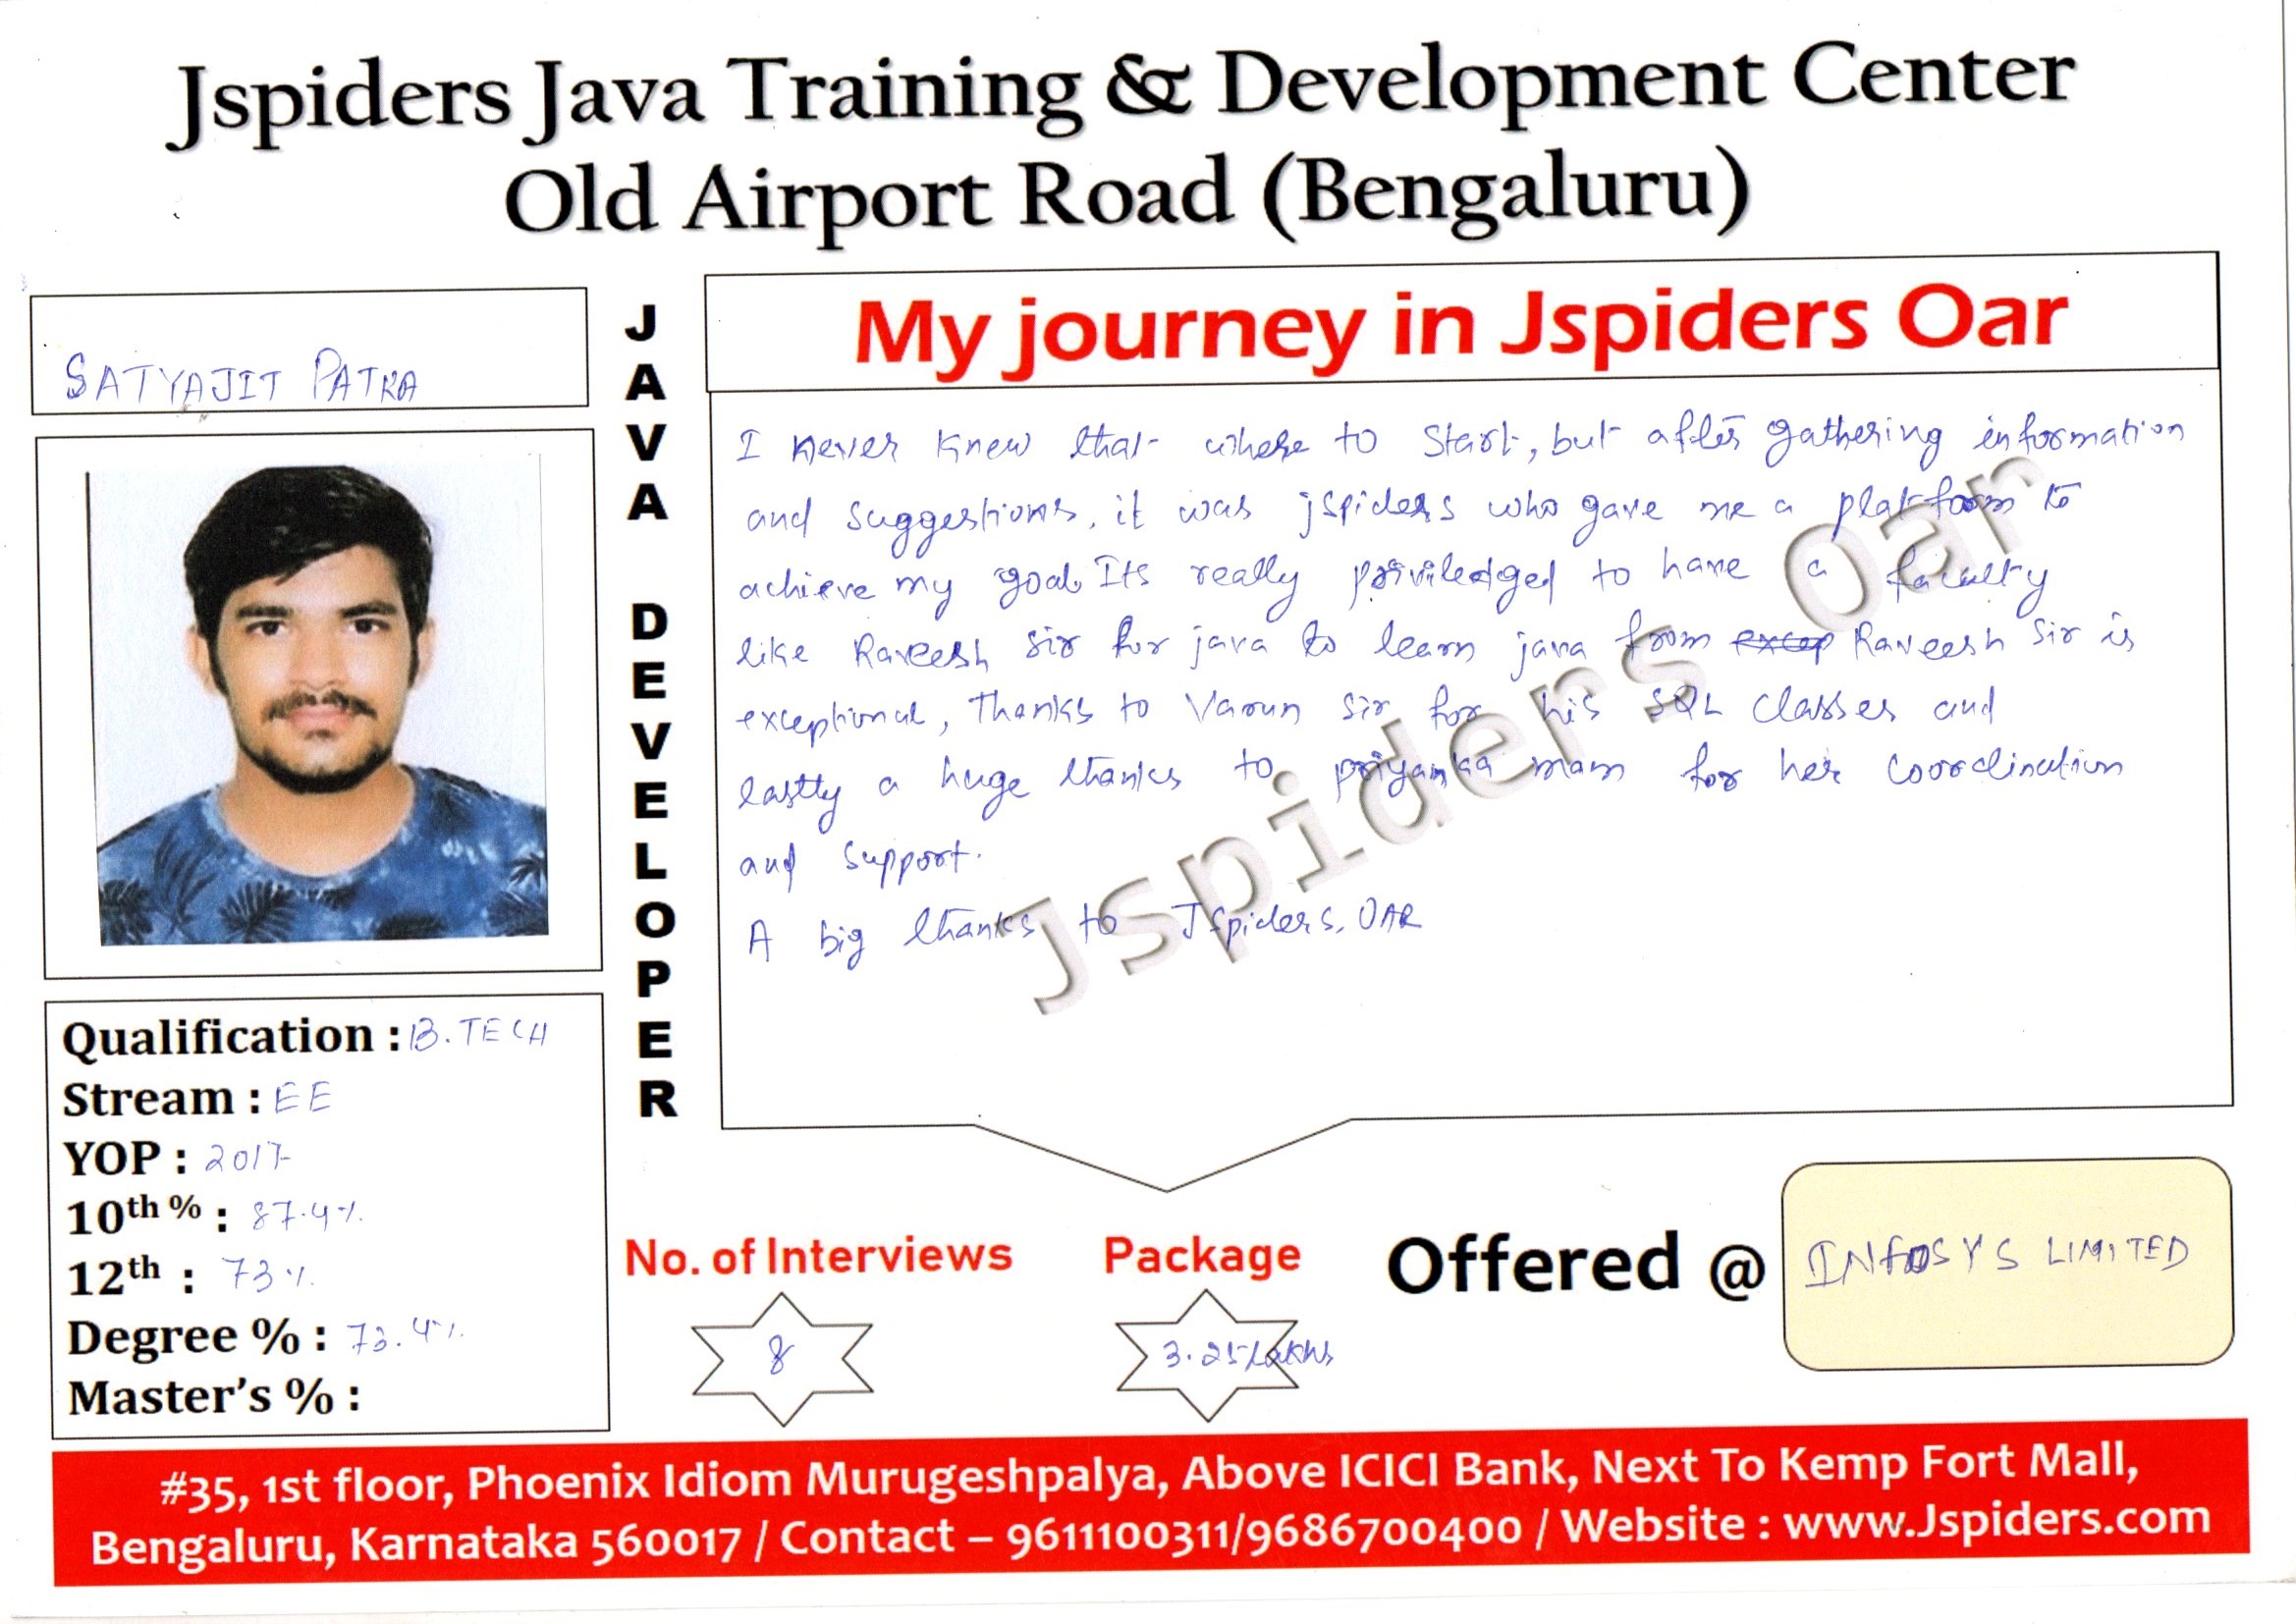 Jspiders Java Training & Development Center
Old Airport Road (Bengaluru)
SATYAJIT PATRA
JAVA DEVELOPER
My journey in Jspiders Oar
I never knew that where to start, but after gathering information
and suggestions, it was jspiders who gave me a platform to
achieve my goal. Its really priviledged to have a faculty
like Raveesh sir for java to learn java from Raveesh sir is
exceptional, Thanks to Varun sir for his SQL classes and
lastly a huge thanks to priyanka mam for her coordination
and support.
A big thanks to Jspiders, OAR
Jspiders Oar
Qualification : B.TECH
Stream : EE
YOP : 2017
10th % : 87.4%
12th : 73%
Degree % : 73.4%
Master's % :
No. of Interviews
8
Package
3.25 Lakhs
Offered @ INFOSYS LIMITED
#35, 1st floor, Phoenix Idiom Murugeshpalya, Above ICICI Bank, Next To Kemp Fort Mall,
Bengaluru, Karnataka 560017 / Contact – 9611100311/9686700400 / Website : www.Jspiders.com